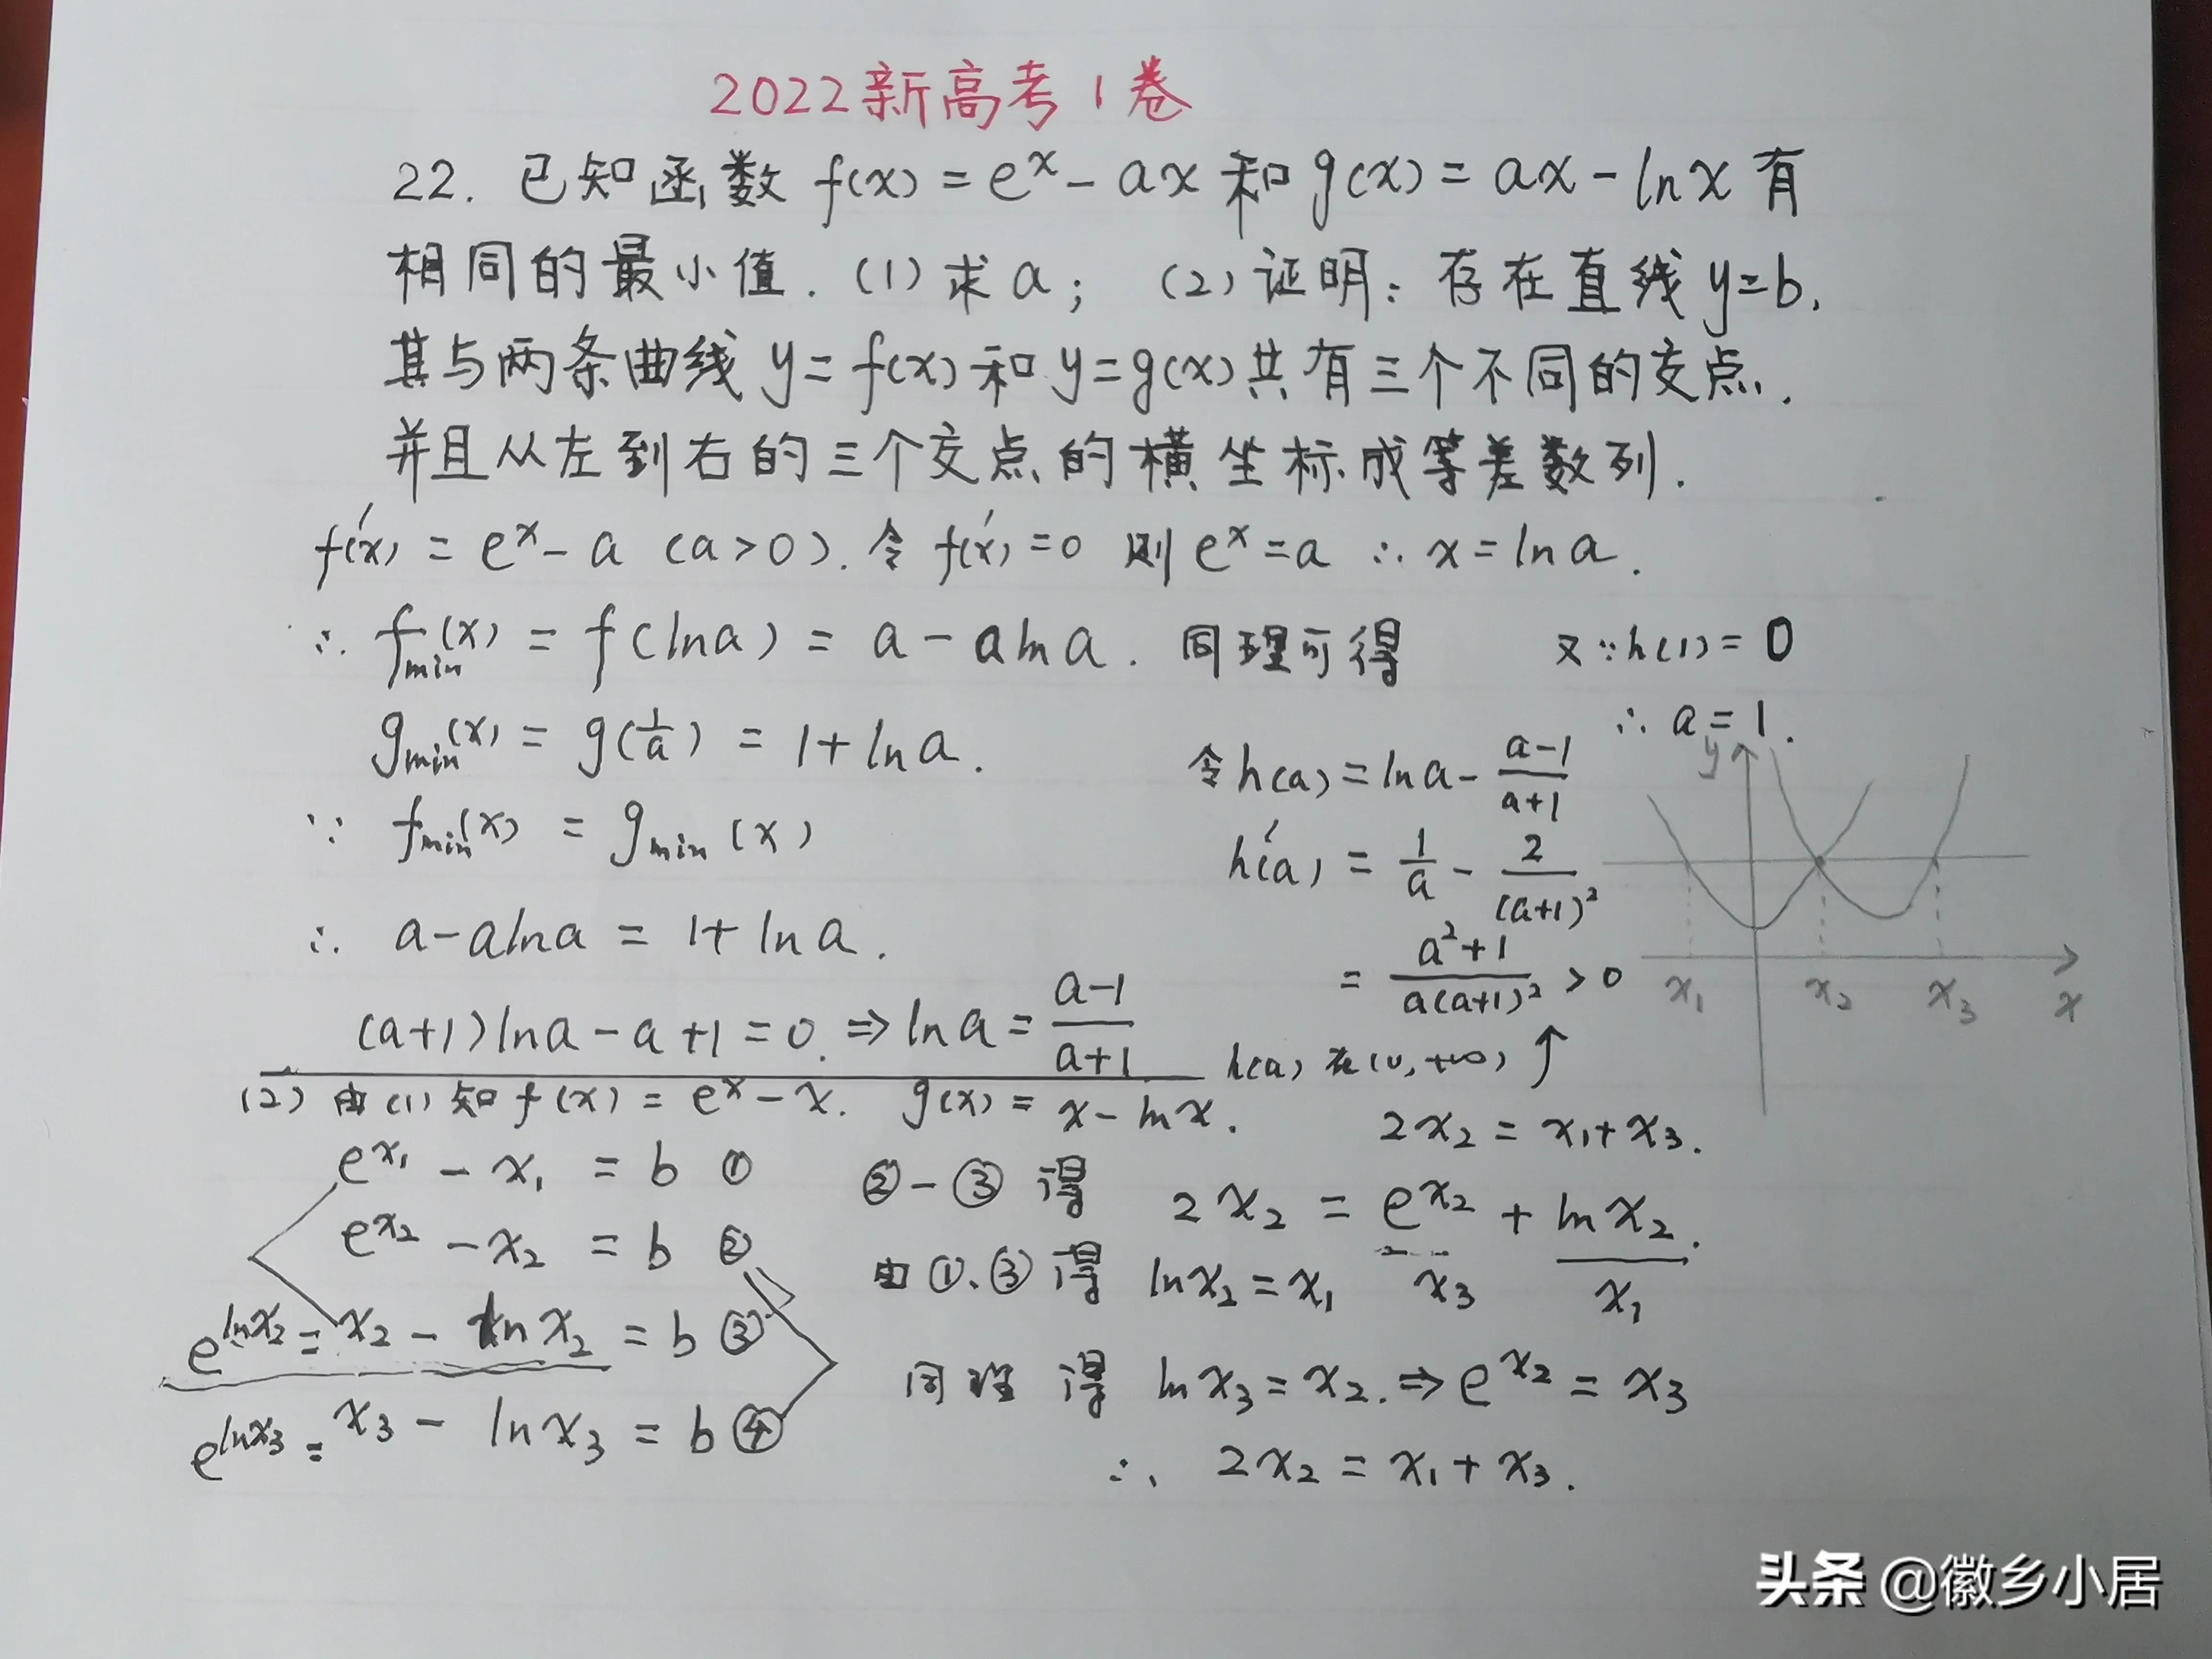 2022新高考1卷
22. 已知函数 f(x) = e^x - ax 和 g(x) = ax - lnx 有
相同的最小值. (1) 求 a; (2) 证明: 存在直线 y=b,
其与两条曲线 y = f(x) 和 y = g(x) 共有三个不同的交点.
并且从左到右的三个交点的横坐标成等差数列.
f'(x) = e^x - a (a>0). 令 f'(x) = 0 则 e^x = a ∴ x = ln a.
∴ f_min(x) = f(lna) = a - alna. 同理可得
g_min(x) = g(1/a) = 1 + lna.
∵ f_min(x) = g_min(x)
∴ a - alna = 1 + lna.
(a+1)lna - a + 1 = 0. ⇒ lna = (a-1)/(a+1)
令 h(a) = lna - (a-1)/(a+1)
h'(a) = 1/a - 2/(a+1)²
= (a²+1)/(a(a+1)²) > 0
h(a) 在 (0, +∞) ↑
又∵ h(1) = 0
∴ a = 1.
y
x₁ x₂ x₃ x
(2) 由(1)知 f(x) = e^x - x. g(x) = x - lnx.
e^x₁ - x₁ = b ①
e^x₂ - x₂ = b ②
e^lnx₂ = x₂ - lnx₂ = b ③
e^lnx₃ = x₃ - lnx₃ = b ④
2x₂ = x₁ + x₃.
② - ③ 得 2x₂ = e^x₂ + lnx₂.
由①、③得 lnx₂ = x₁ x₃ x₁
同理得 lnx₃ = x₂. ⇒ e^x₂ = x₃
∴ 2x₂ = x₁ + x₃.
头条 @徽乡小居